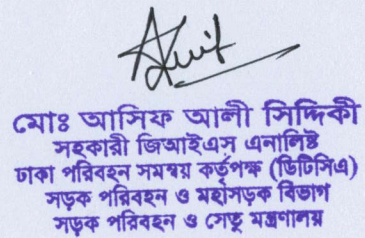 মোঃ আসিফ আলী সিদ্দিকী
সহকারী জিআইএস এনালিষ্ট
ঢাকা পরিবহন সমন্বয় কর্তৃপক্ষ (ডিটিসিএ)
সড়ক পরিবহন ও মহাসড়ক বিভাগ
সড়ক পরিবহন ও সেতু মন্ত্রণালয়